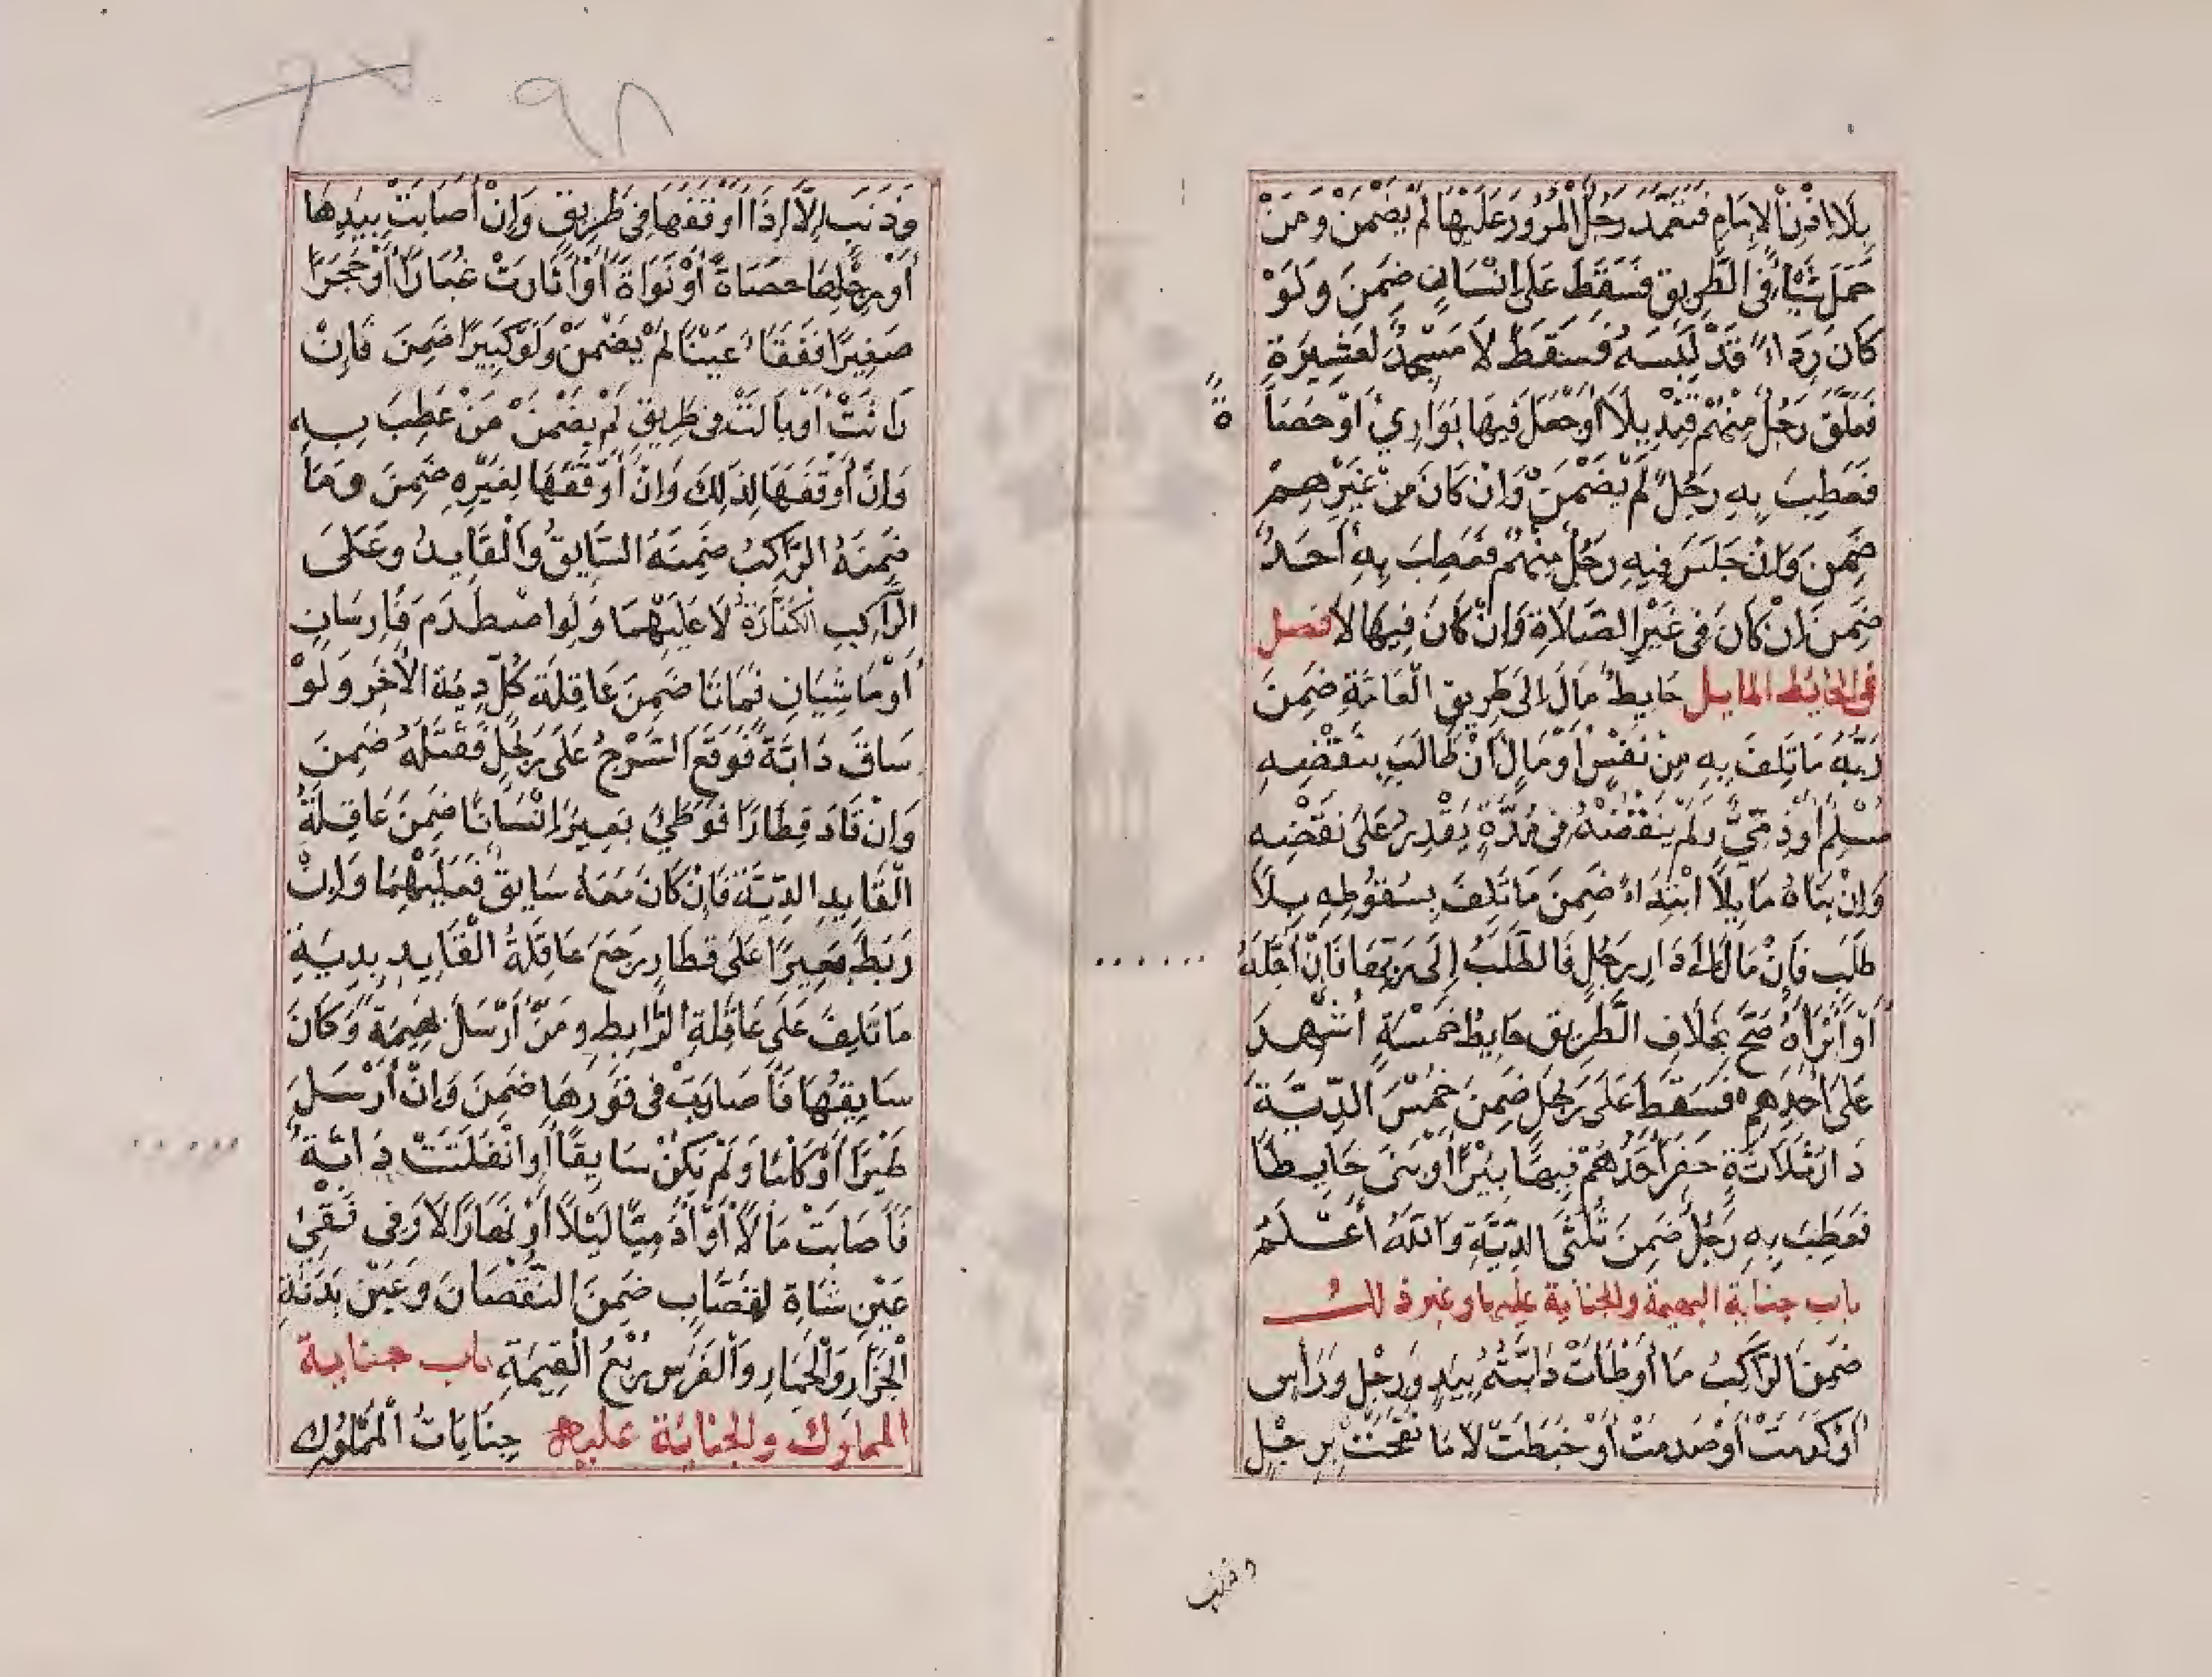 بِلَا اذْنِ الْاِمَامِ فَتَعَمَّدَ رَجُلٌ الْمُرُورَ عَلَيْهَا لَمْ يَضْمَنْ وَمَنْ
حَمَلَ شَيْئًا فِي الطَّرِيقِ فَسَقَطَ عَلَى اِنْسَانٍ ضَمِنَ وَلَوْ
كَانَ رِدَاءً قَدْ لَبِسَهُ فَسَقَطَ لَا مَسْجِدٌ لِعَشِيرَةٍ
فَعَلَّقَ رَجُلٌ مِنْهُمْ قِنْدِيلًا أَوْ جَعَلَ فِيهَا بَوَارِيَ أَوْ حَصَاً
ه
فَعَطِبَ بِهِ رَجُلٌ لَمْ يَضْمَنْ وَاِنْ كَانَ مِنْ غَيْرِهِمْ
ضَمِنَ وَاِنْ جَلَسَ فِيهِ رَجُلٌ مِنْهُمْ فَعَطِبَ بِهِ أَحَدٌ
ضَمِنَ اِنْ كَانَ فِي غَيْرِ الصَّلَاةِ وَاِنْ كَانَ فِيهَا لَا فصل
في الحايط المايل حَايِطٌ مَالَ اِلَى طَرِيقِ الْعَامَّةِ ضَمِنَ
رَبُّهُ مَا تَلِفَ بِهِ مِنْ نَفْسٍ أَوْ مَالٍ اَنْ طَالَبَ بِنَقْضِهِ
مُسْلِمٌ أَوْ ذِمِّيٌّ وَلَمْ يَنْقُضْهُ فِي مُدَّةٍ يَقْدِرُ عَلَى نَقْضِهِ
وَاِنْ بَنَاهُ مَايِلًا ابْتِدَاءً ضَمِنَ مَا تَلِفَ بِسُقُوطِهِ بِلَا
طَلَبٍ فَاِنْ مَالَ اِلَى دَارِ رَجُلٍ فَالطَّلَبُ اِلَى رَبِّهَا فَاِنْ أَجَّلَهُ
أَوْ أَبْرَأَهُ صَحَّ بِخِلَافِ الطَّرِيقِ حَايِطُ خَمْسَةٍ أُشْهِدَ
عَلَى أَحَدِهِمْ فَسَقَطَ عَلَى رَجُلٍ ضَمِنَ خُمْسَ الدِّيَّةِ
دَارُ ثَلَاثَةٍ حَفَرَ أَحَدُهُمْ فِيهَا بِئْرًا أَوْ بَنَى حَايِطًا
فَعَطِبَ بِهِ رَجُلٌ ضَمِنَ ثُلُثَيِ الدِّيَّةِ وَاللّٰهُ أَعْلَمُ
باب جناية البهيمة والجناية عليها وغير ذلك
ضَمِنَ الرَّاكِبُ مَا أَوْطَأَتْ دَابَّتُهُ بِيَدٍ وَرِجْلٍ وَرَأْسٍ
أَوْ كَدَمَتْ أَوْ صَدَمَتْ أَوْ خَبَطَتْ لَا مَا نَفَحَتْ بِرِجْلٍ
وذنب
٩٨
وَذَنَبٍ اِلَّا اِذَا أَوْقَفَهَا فِي طَرِيقٍ وَاِنْ أَصَابَتْ بِيَدِهَا
أَوْ رِجْلِهَا حَصَاةً أَوْ نَوَاةً أَوْ أَثَارَتْ غُبَارًا أَوْ حَجَرًا
صَغِيرًا فَفَقَأَ عَيْنًا لَمْ يَضْمَنْ وَلَوْ كَبِيرًا ضَمِنَ فَاِنْ
رَاثَتْ أَوْ بَالَتْ فِي طَرِيقٍ لَمْ يَضْمَنْ مَنْ عَطِبَ بِهِ
وَاِنْ أَوْقَفَهَا لِذٰلِكَ وَاِنْ أَوْقَفَهَا لِغَيْرِهِ ضَمِنَ وَمَا
ضَمِنَهُ الرَّاكِبُ ضَمِنَهُ السَّايِقُ وَالْقَايِدُ وَعَلَى
الرَّاكِبِ الْكَفَّارَةُ لَا عَلَيْهِمَا وَلَوِ اصْطَدَمَ فَارِسَانِ
أَوْ مَاشِيَانِ فَمَاتَا ضَمِنَ عَاقِلَةُ كُلٍّ دِيَةَ الْآخَرِ وَلَوْ
سَاقَ دَابَّةً فَوَقَعَ السَّرْجُ عَلَى رَجُلٍ فَقَتَلَهُ ضَمِنَ
وَاِنْ قَادَ قِطَارًا فَوَطِئَ بَعِيرٌ اِنْسَانًا ضَمِنَ عَاقِلَةُ
الْقَايِدِ الدِّيَّةَ فَاِنْ كَانَ مَعَهُ سَايِقٌ فَعَلَيْهِمَا وَاِنْ
رَبَطَ بَعِيرًا عَلَى قِطَارٍ رَجَعَ عَاقِلَةُ الْقَايِدِ بِدِيَةِ
مَا تَلِفَ عَلَى عَاقِلَةِ الرَّابِطِ وَمَنْ أَرْسَلَ بَهِيمَةً وَكَانَ
سَايِقَهَا فَأَصَابَتْ فِي فَوْرِهَا ضَمِنَ وَاِنْ أَرْسَلَ
طَيْرًا أَوْ كَلْبًا وَلَمْ يَكُنْ سَايِقًا أَوِ انْفَلَتَتْ دَابَّةٌ
فَأَصَابَتْ مَالًا أَوْ آدَمِيًّا لَيْلًا أَوْ نَهَارًا لَا وَفِي فَقْئِ
عَيْنِ شَاةٍ لِقَصَّابٍ ضَمِنَ النُّقْصَانَ وَعَيْنِ بَدَنَةِ
الْجَزَّارِ وَالْحِمَارِ وَالْفَرَسِ رُبْعُ الْقِيمَةِ باب جناية
المملوك والجناية عليه جِنَايَاتُ الْمَمْلُوكِ